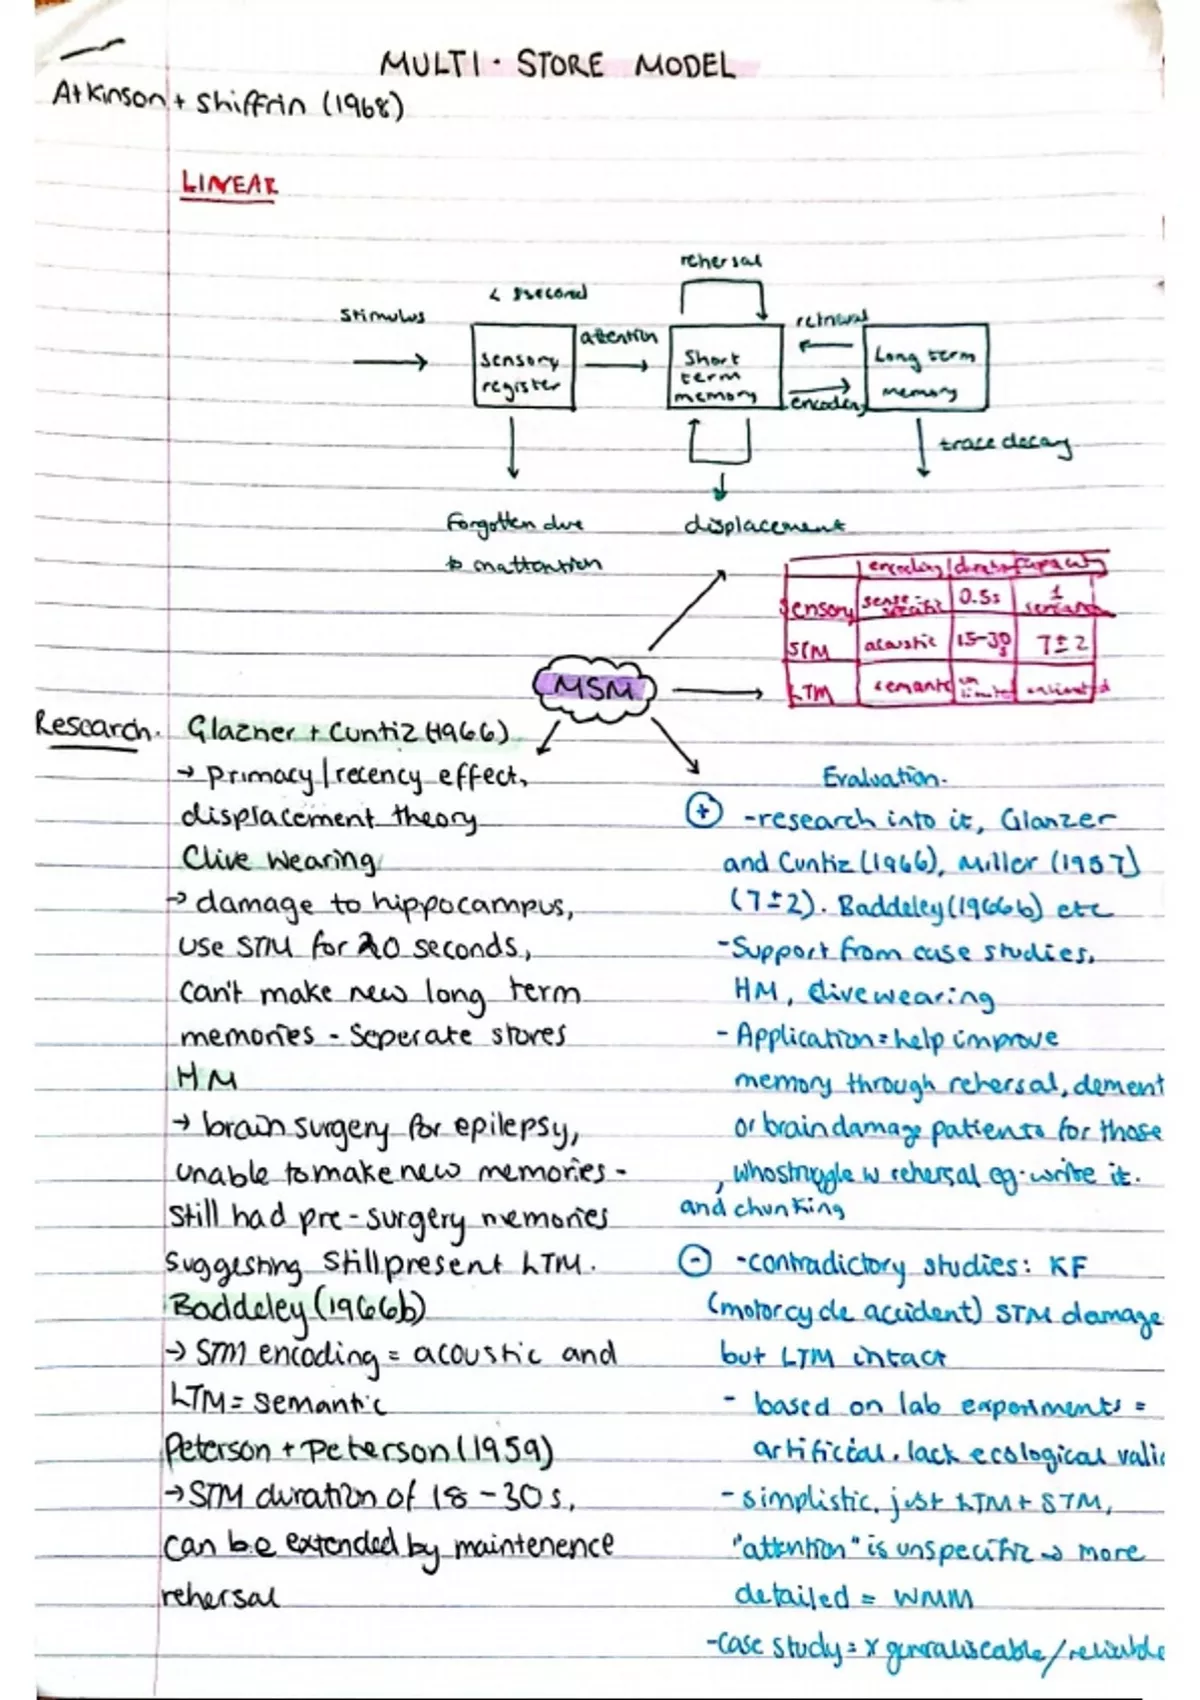 MULTI·STORE MODEL
Atkinson + shiffrin (1968)
LINEAR
rehersal
< second
stimulus
retrieval
attention
sensory
register
Short
term
memory
Long term
memory
encoding
trace decay
Forgotten due
to inattention
displacement
encoding duration capacity
Sensory sense specific 0.5s
STM acoustic 15-30s 7±2
LTM semantic unlimited unlimited
MSM
Research. Glazner + Cuntiz (1966)
→ primacy/recency effect,
displacement theory
Clive Wearing
→ damage to hippocampus,
use STM for 20 seconds,
can't make new long term
memories - Seperate stores
HM
→ brain surgery for epilepsy,
unable to make new memories -
still had pre-surgery memories
suggesting still present LTM.
Baddeley (1966b)
→ STM encoding = acoustic and
LTM = semantic
Peterson + Peterson (1959)
→ STM duration of 18-30s,
can be extended by maintenence
rehersal
Evaluation.
+ -research into it, Glanzer
and Cuntiz (1966), Miller (1957)
(7±2). Baddeley (1966b) etc
-Support from case studies,
HM, clive wearing
- Application = help improve
memory through rehersal, dement
or brain damage patients for those
, who struggle w rehersal eg. write it.
and chunking
- -contradictory studies: KF
(motorcycle accident) STM damage
but LTM intact
- based on lab experiments =
artificial. lack ecological valid
-simplistic. just LTM + STM,
"attention" is unspecific → more
detailed = WMM
-case study = x generaliseable/reliable